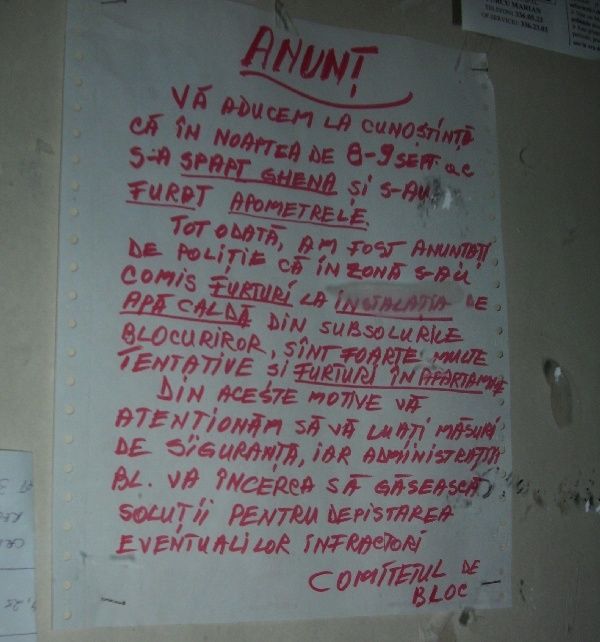 ANUNȚ
VĂ ADUCEM LA CUNOȘTINȚĂ
CĂ ÎN NOAPTEA DE 8-9 SEPT. a.c
S-A SPART GHENA ȘI S-AU
FURAT APOMETRELE.
TOT ODATĂ, AM FOST ANUNȚAȚI
DE POLIȚIE CĂ ÎN ZONĂ S-AU
COMIS FURTURI LA INSTALAȚIA DE
APĂ CALDĂ DIN SUBSOLURILE
BLOCURIROR, SÎNT FOARTE MULTE
TENTATIVE SI FURTURI ÎN APARTAMNE
DIN ACESTE MOTIVE VĂ
ATENTIONĂM SĂ VĂ LUAȚI MĂSURI
DE SIGURANȚĂ, IAR ADMINISTRAȚIA
BL. VA ÎNCERCA SĂ GĂSEASCĂ
SOLUȚII PENTRU DEPISTAREA
EVENTUALILOR INFRACTORI
COMITETUL DE
BLOC
MARIAN
TELEFON: 336.05.22
OF.SERVICIU: 336.23.03